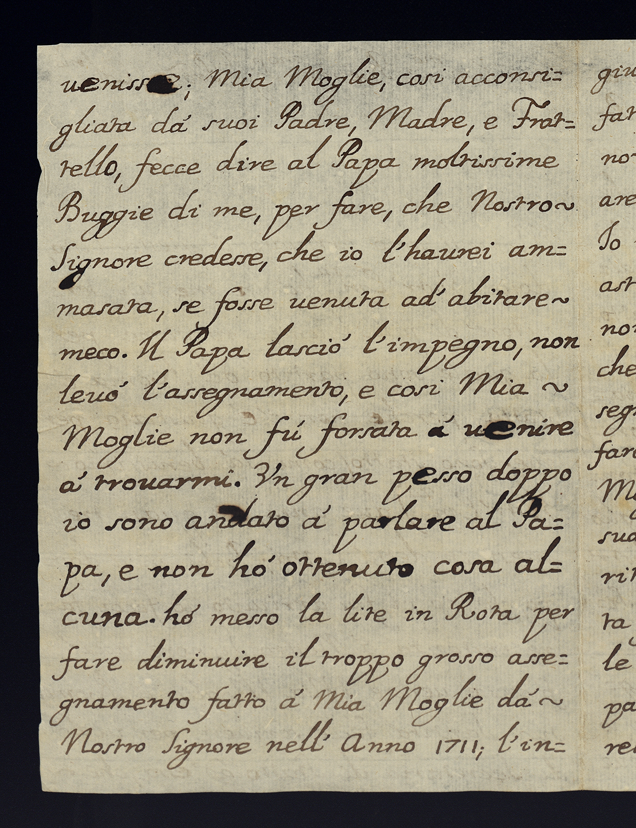 uenisse; Mia Moglie, cosi acconsi=
gliata dá suoi Padre, Madre, e Frat=
tello, fecce dire al Papa moltissime
Buggie di me, per fare, che Nostro~
Signore credesse, che io l'haurei am=
masata, se fosse uenuta ad' abitare~
meco. Il Papa lasció l'impegno, non
leuó l'assegnamento, e cosi Mia ~
Moglie non fú forsata á uenire
á trouarmi. Vn gran pesso doppo
io sono andato á parlare al Pa=
pa, e non hó ottenuto cosa al=
cuna. hó messo la lite in Rota per
fare diminuire il troppo grosso asse=
gnamento fatto á Mia Moglie dá~
Nostro Signore nell' Anno 1711; l'in=
giu
fat
no
are
Io
ast
non
che
seg
fare
M
sua
rit
ta
le
pa
re